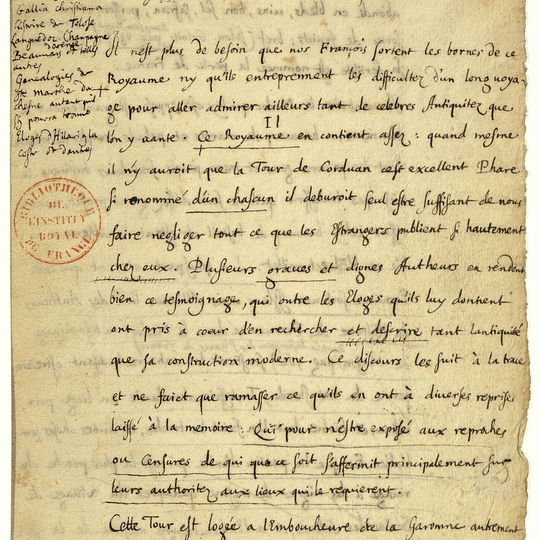 Gallia christiana
histoire de Tolose
Languedoc, Champagne
Beauvais et
autres
Genealogies de
Ste marthe du
chesne autant qu'il
s'en pourra
Eloges d'Hilarion la
coste de dautres
Il n'est plus de besoin que nos François sortent les bornes de ce
Royaume ny qu'ils entreprennent les difficultez d'un long voya-
ge pour aller admirer ailleurs tant de celebres Antiquitez que
l'on y vante. Ce Royaume en contient assez: quand mesme
Il
il n'y auroit que la Tour de Corduan cest excellent Phare
si renommé d'un chascun il deburoit seul estre suffisant de nous
faire negliger tout ce que les Estrangers publient si hautement
chez eux. Plusieurs graves et dignes Autheurs en rendent
bien ce tesmoignage, qui outre les Eloges qu'ils luy donnent
ont pris à coeur d'en rechercher et descrire tant lantiquité
que sa construction moderne. Ce discours les suit à la trace
et ne faict que ramasser ce qu'ils en ont à diverses reprises
laissé à la memoire: Qui pour n'estre exposé aux reproches
ou Censures de qui que ce soit s'affermit principalement sur
leurs authoritez aux lieux qui le requierent.
Cette Tour est logée a l'Emboucheure de la Garonne autrement
BIBLIOTHEQUE
DE
L'INSTITUT
ROYAL
DE FRANCE